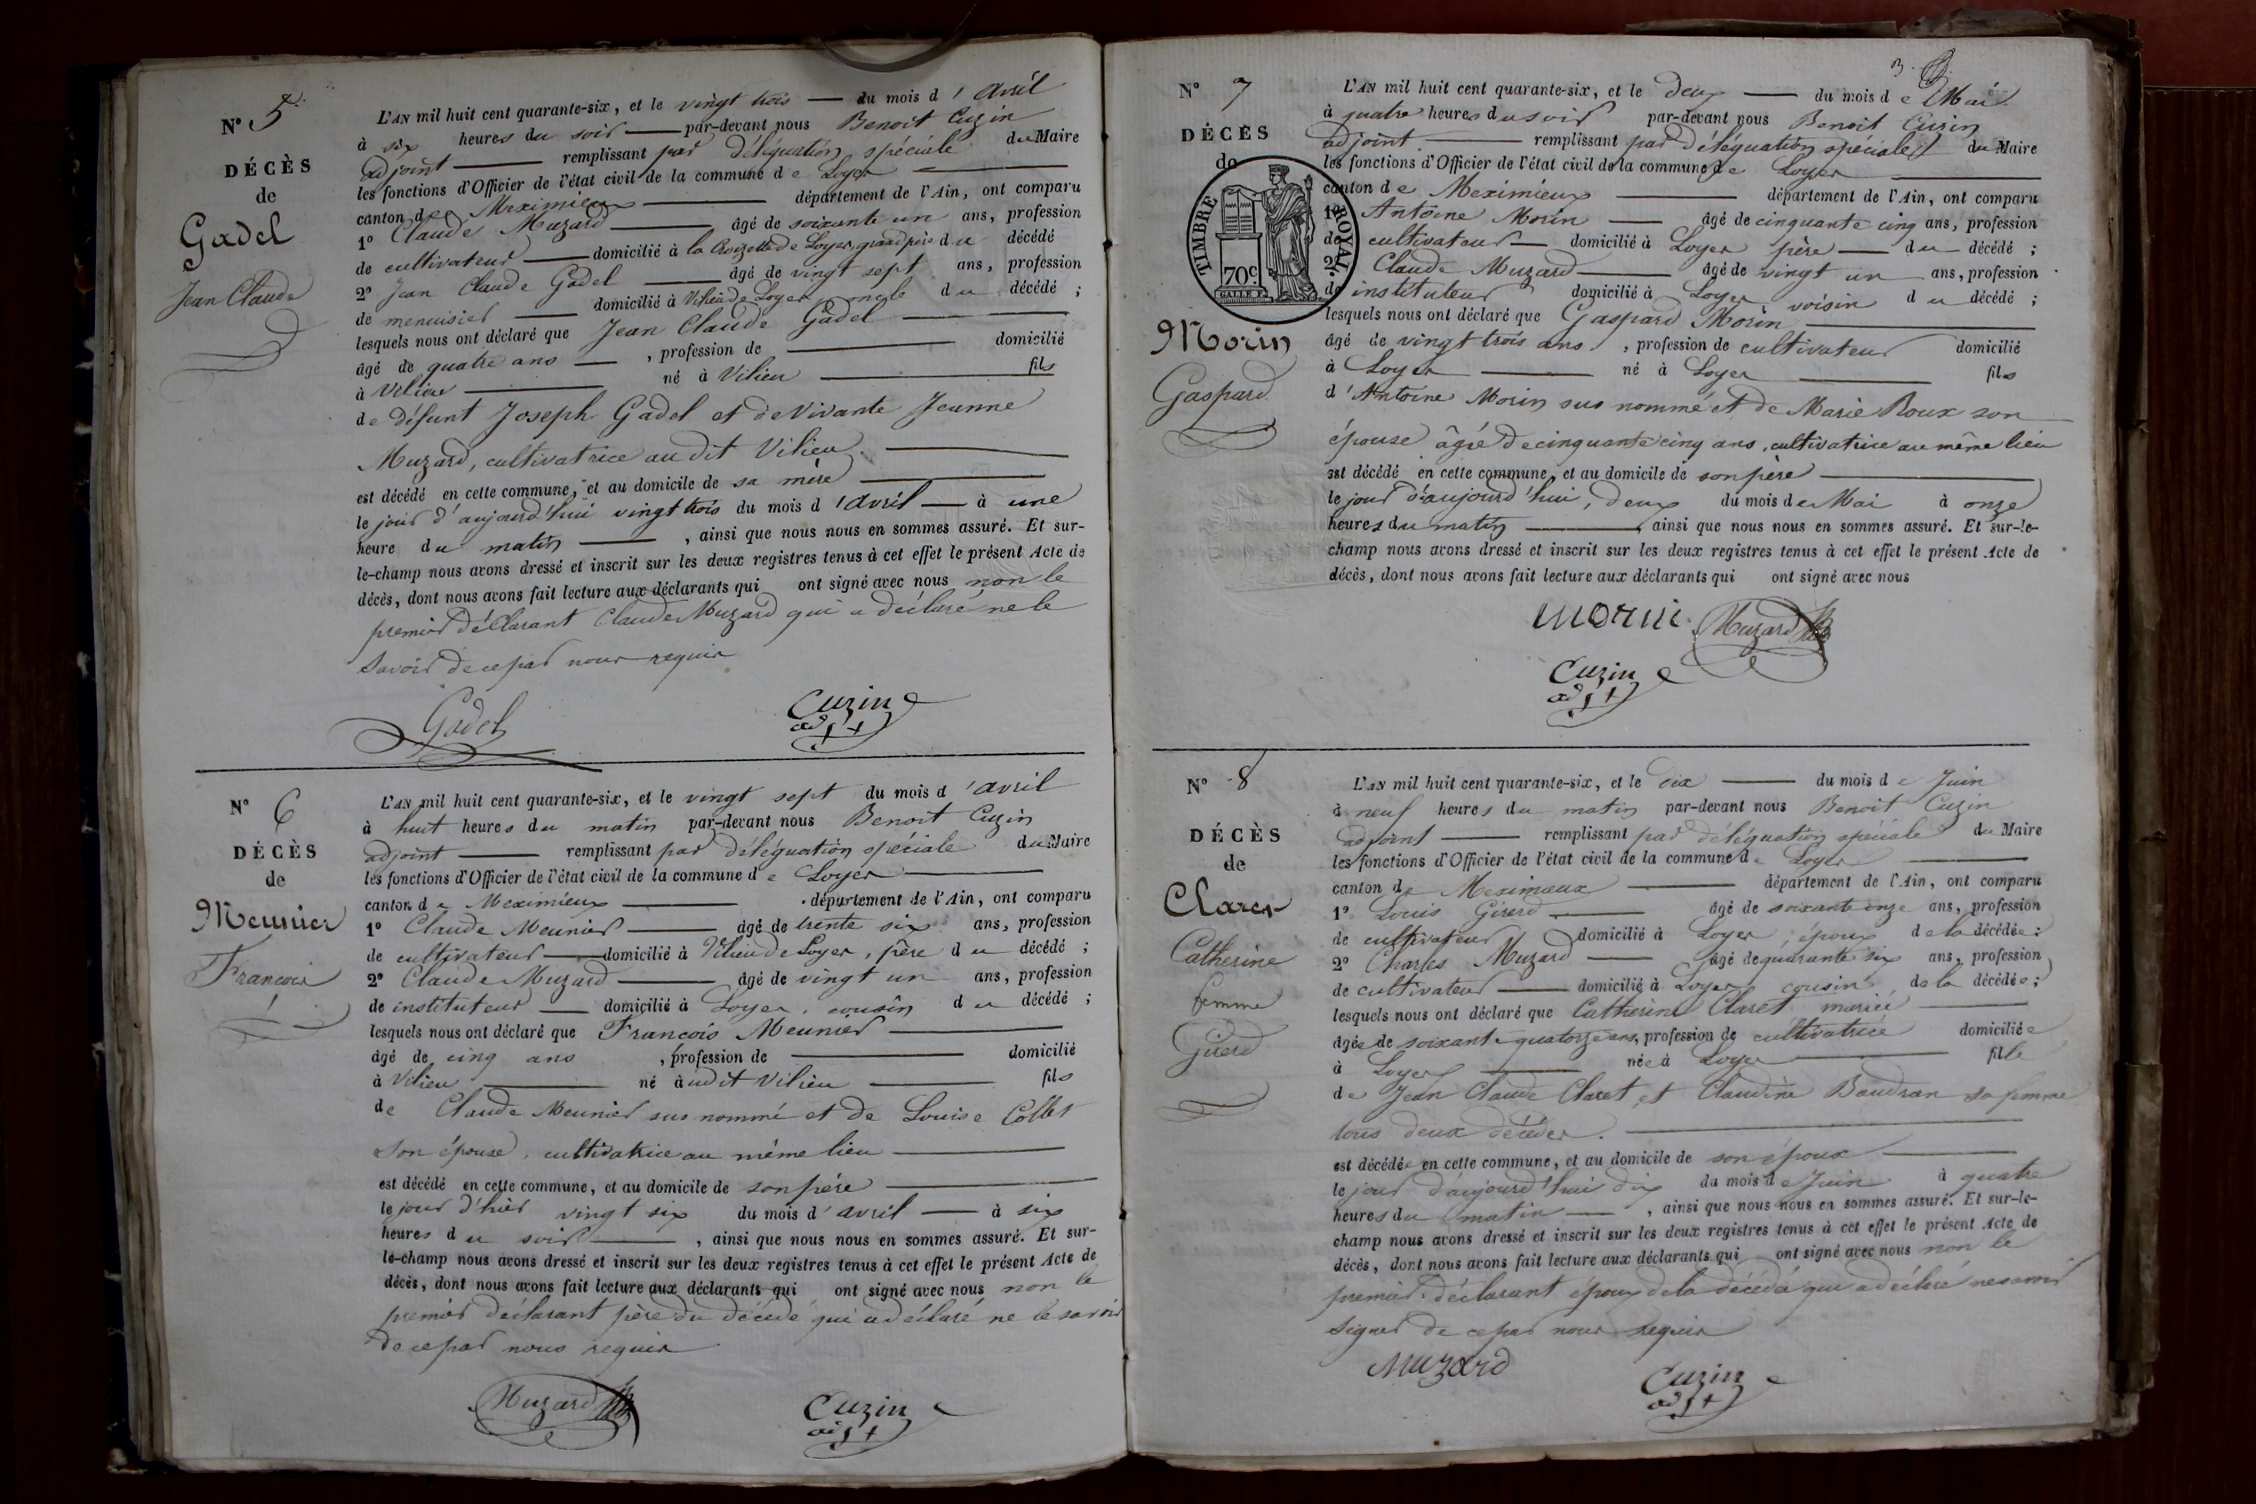 N° 5
DÉCÈS
de
Gadel
Jean Claude
L'AN mil huit cent quarante-six, et le vingt trois du mois d'avril
à six heures du soir par-devant nous Benoit Cuzin
adjoint remplissant par déléguation spéciale du Maire
les fonctions d'Officier de l'état civil de la commune de Loyer
canton de Meximieux département de l'Ain, ont comparu
1° Claude Muzard âgé de soixante un ans, profession
de cultivateur domicilié à la Croizette de Loyer grand père du décédé
2° Jean Claude Gadel âgé de vingt sept ans, profession
de menuisier domicilié à Vilieu de Loyer, oncle du décédé ;
lesquels nous ont déclaré que Jean Claude Gadel
âgé de quatre ans, profession de domicilié
à Vilieu né à Vilieu fils
de défunt Joseph Gadel et de Vivante Jeanne
Muzard, cultivatrice au dit Vilieu.
est décédé en cette commune, et au domicile de sa mère
le jour d'aujourd'hui vingt trois du mois d'avril à une
heure du matin, ainsi que nous nous en sommes assuré. Et sur-
le-champ nous avons dressé et inscrit sur les deux registres tenus à cet effet le présent Acte de
décès, dont nous avons fait lecture aux déclarants qui ont signé avec nous non le
premier déclarant Claude Muzard qui a déclaré ne le
savoir de ce par nous requis
Gadel Cuzin
adjt
N° 6
DÉCÈS
de
Meunier
François
L'AN mil huit cent quarante-six, et le vingt sept du mois d'avril
à huit heures du matin par-devant nous Benoit Cuzin
adjoint remplissant par déléguation spéciale du Maire
les fonctions d'Officier de l'état civil de la commune de Loyer
canton de Meximieux département de l'Ain, ont comparu
1° Claude Meunier âgé de trente six ans, profession
de cultivateur domicilié à Vilieu de Loyer, père du décédé ;
2° Claude Muzard âgé de vingt un ans, profession
de instituteur domicilié à Loyer, cousin du décédé ;
lesquels nous ont déclaré que François Meunier
âgé de cinq ans, profession de domicilié
à Vilieu né à udit Vilieu fils
de Claude Meunier sus nommé et de Louise Collet
son épouse, cultivatrice au même lieu
est décédé en cette commune, et au domicile de son père
le jour d'hier vingt six du mois d'avril à six
heures du soir, ainsi que nous nous en sommes assuré. Et sur-
le-champ nous avons dressé et inscrit sur les deux registres tenus à cet effet le présent Acte de
décès, dont nous avons fait lecture aux déclarants qui ont signé avec nous non le
premier déclarant père du décédé qui a déclaré ne le savoir
de ce par nous requis
Muzard Cuzin
adjt
3
N° 7
DÉCÈS
de
TIMBRE ROYAL
70c
Morin
Gaspard
L'AN mil huit cent quarante-six, et le deux du mois de Mai
à quatre heures du soir par-devant nous Benoit Cuzin
adjoint remplissant par déléguation spéciale du Maire
les fonctions d'Officier de l'état civil de la commune de Loyer
canton de Meximieux département de l'Ain, ont comparu
1° Antoine Morin âgé de cinquante cinq ans, profession
de cultivateur domicilié à Loyer père du décédé ;
2° Claude Muzard âgé de vingt un ans, profession
de instituteur domicilié à Loyer voisin du décédé ;
lesquels nous ont déclaré que Gaspard Morin
âgé de vingt trois ans, profession de cultivateur domicilié
à Loyer né à Loyer fils
d'Antoine Morin sus nommé et de Marie Roux son
épouse âgée de cinquante cinq ans, cultivatrice au même lieu
est décédé en cette commune, et au domicile de son père
le jour d'aujourd'hui, deux du mois de Mai à onze
heures du matin, ainsi que nous nous en sommes assuré. Et sur-le-
champ nous avons dressé et inscrit sur les deux registres tenus à cet effet le présent Acte de
décès, dont nous avons fait lecture aux déclarants qui ont signé avec nous
morin Muzard
Cuzin
adjt
N° 8
DÉCÈS
de
Claret
Catherine
femme
Girerd
L'AN mil huit cent quarante-six, et le dix du mois de Juin
à neuf heures du matin par-devant nous Benoit Cuzin
adjoint remplissant par déléguation spéciale du Maire
les fonctions d'Officier de l'état civil de la commune de Loyer
canton de Meximieux département de l'Ain, ont comparu
1° Louis Girerd âgé de soixante onze ans, profession
de cultivateur domicilié à Loyer, époux de la décédée ;
2° Charles Muzard âgé de quarante six ans, profession
de cultivateur domicilié à Loyer, cousin, de la décédée ;
lesquels nous ont déclaré que Catherine Claret mariée
âgée de soixante quatorze ans, profession de cultivatrice domiciliée
à Loyer née à Loyer fille
de Jean Claude Claret et Claudine Baudran sa femme
tous deux décédés.
est décédée en cette commune, et au domicile de son époux
le jour d'aujourd'hui dix du mois de Juin à quatre
heures du matin, ainsi que nous nous en sommes assuré. Et sur-le-
champ nous avons dressé et inscrit sur les deux registres tenus à cet effet le présent Acte de
décès, dont nous avons fait lecture aux déclarants qui ont signé avec nous non le
premier déclarant époux de la décédé qui a déclaré ne savoir
signer de ce par nous requis
Muzard Cuzin
adjt